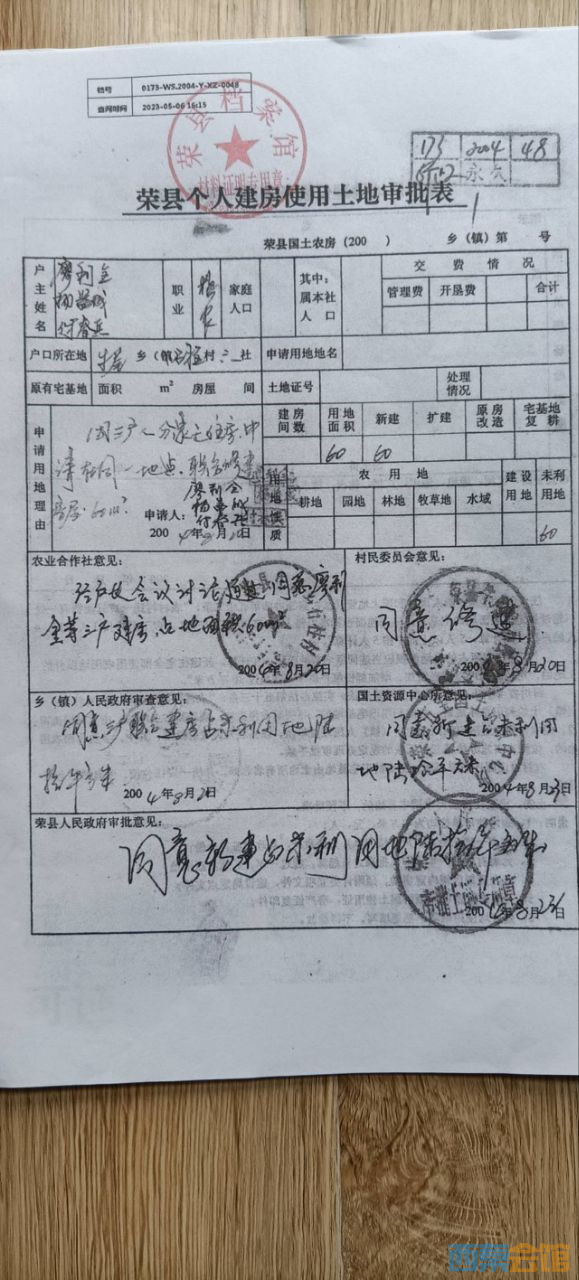 档号 0173-WS.2004-Y-XZ-0048
查阅时间 2023-05-06 16:15
荣县档案馆
材料证明专用章
173 2004 48
永久
荣县个人建房使用土地审批表
荣县国土农房（200 ）乡（镇）第 号
户主姓名 廖利全
职业 务农
家庭人口
其中：属本社人口
交费情况
管理费 开垦费 合计
户口所在地 乡（镇） 村 社 申请用地地名
原有宅基地 面积 m² 房屋 间 土地证号 处理情况
申请用地理由
因三户人分家无住房，申
请在同一地点，联合修建
住房，60m²
申请人：廖利全
2004年8月20日
建房间数 用地面积 新建 扩建 原房改造 宅基地复耕
60 60
用地性质
农用地 建设用地 未利用地
耕地 园地 林地 牧草地 水域
60
农业合作社意见：
经户户会议讨论通过，同意廖利
全等三户建房，占地面积60m²
2004年8月20日
村民委员会意见：
同意修建
2004年8月20日
乡（镇）人民政府审查意见：
同意三户联合建房占未利用地陆
拾平方米
2004年8月21日
国土资源中心所意见：
同意新建占未利用
地陆拾平方米
2004年8月23日
荣县人民政府审批意见：
同意新建占未利用地陆拾平方米
2004年8月23日
西祠会馆